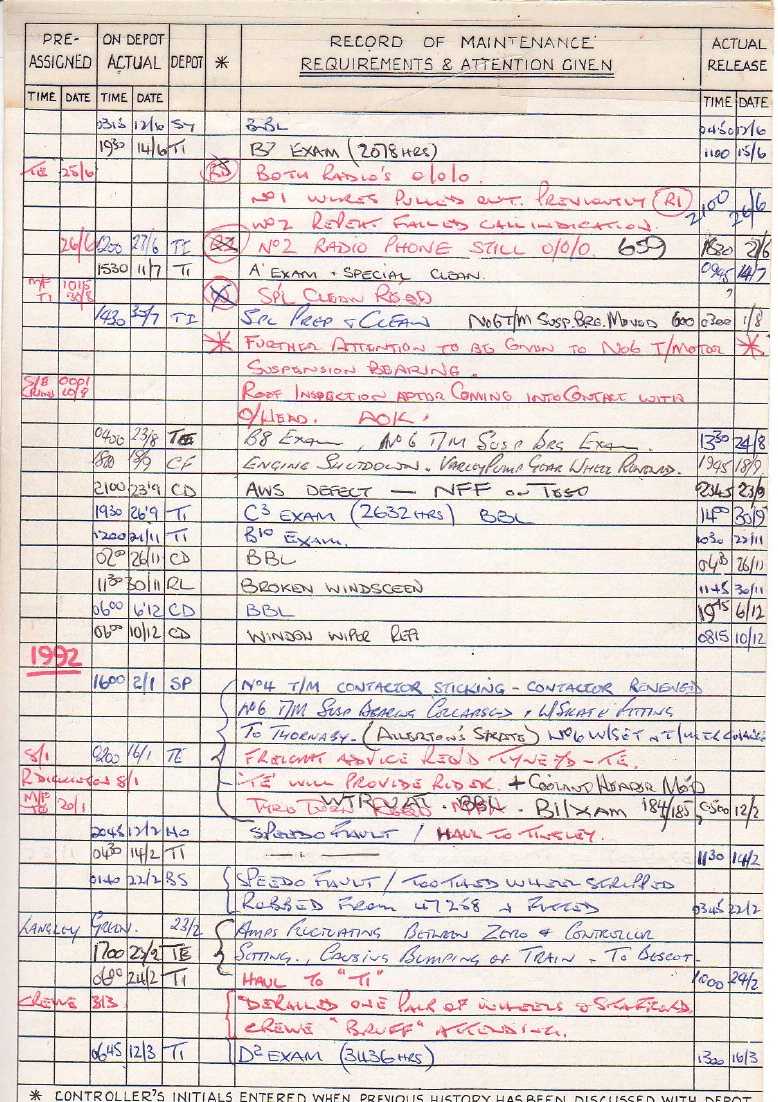 PRE-ASSIGNED ON DEPOT ACTUAL DEPOT * RECORD OF MAINTENANCE REQUIREMENTS & ATTENTION GIVEN ACTUAL RELEASE
TIME DATE TIME DATE TIME DATE
0315 12/6 SY BBL 0450 12/6
1930 14/6 TI B7 EXAM (2078 HRS) 1100 15/6
TE 25/6 BOTH RADIO'S 0/0/0.
No1 WIRES PULLED OUT. PREVIOUSLY (R1) 2100 26/6
No2 REPEAT FAILED CALL INDICATION.
26/6 1200 27/6 TI R2 No2 RADIO PHONE STILL 0/0/0. 659 1830
1530 11/7 TI A' EXAM + SPECIAL CLEAN. 0945 14/7
M/F TI 1015 30/8 SPL CLEAN REQD ?
1430 TI SPL PREP & CLEAN No6 T/M SUSP. BRG. MOVED 600 0300 1/8
* FURTHER ATTENTION TO BE GIVEN TO No6 T/MOTOR *
SUSPENSION BEARING.
S/B 0001 10/8 ROOF INSPECTION AFTER COMING INTO CONTACT WITH
O/HEAD. AOK.
0400 23/8 TE B8 EXAM, No6 T/M SUSP BRG EXAM. 1330 24/8
1800 18/9 CF ENGINE SHUTDOWN. VARLEY PUMP GEAR WHEEL RENEWD. 1945 18/9
2100 23'9 CD AWS DEFECT — NFF ON TESO 2345 23/9
1930 26'9 TI C3 EXAM (2632 HRS) BBL 1400 30/9
1200 21/11 TI B10 EXAM. 1030 22/11
0200 26/11 CD BBL 26/11
1130 30/11 RL BROKEN WINDSCEEN 1145 30/11
0600 6'12 CD BBL 1945 6/12
0600 10/12 CD WINDON WIPER REFI 0815 10/12
1992
1600 2/1 SP No4 T/M CONTACTOR STICKING - CONTACTOR RENEWED
No6 T/M SUSP BEARING COLLAPSED & W/SKATE FITTING
TO THORNABY. (ALLERTON'S SKATE) No6 W/SET
8/1 0200 16/1 TE FREIGHT ADVICE REQ'D TYNE - TE.
8/1 'TE' WILL PROVIDE RIDER. + COOLANT HEADER MOD
M/F TE 20/1 BBL. B11/XAM 184/185 0500 12/2
2045 12/2 HO SPEEDO FAULT / HAUL TO TINSLEY.
0430 14/2 TI — " — 1130 14/2
0140 22/2 BS SPEEDO FAULT / TOOTHED WHEEL STRIPPED
ROBBED FROM 47258 & FITTED 0345 22/2
LANGLEY GREEN. 23/2 AMPS FLUCTUATING BETWEEN ZERO & CONTROLLER
1700 23/2 TE SETTING., CAUSING BUMPING OF TRAIN - TO BESCOT.
0600 24/2 TI HAUL TO "TI" 1000 29/2
CREWE 3/3 "DERAILED ONE PAIR OF WHEELS @ STAFFORD
CREWE "BRUFF" ATTENDING.
0645 12/3 TI D2 EXAM (3436 HRS) 1300 16/3
* CONTROLLER'S INITIALS ENTERED WHEN PREVIOUS HISTORY HAS BEEN DISCUSSED WITH DEPOT